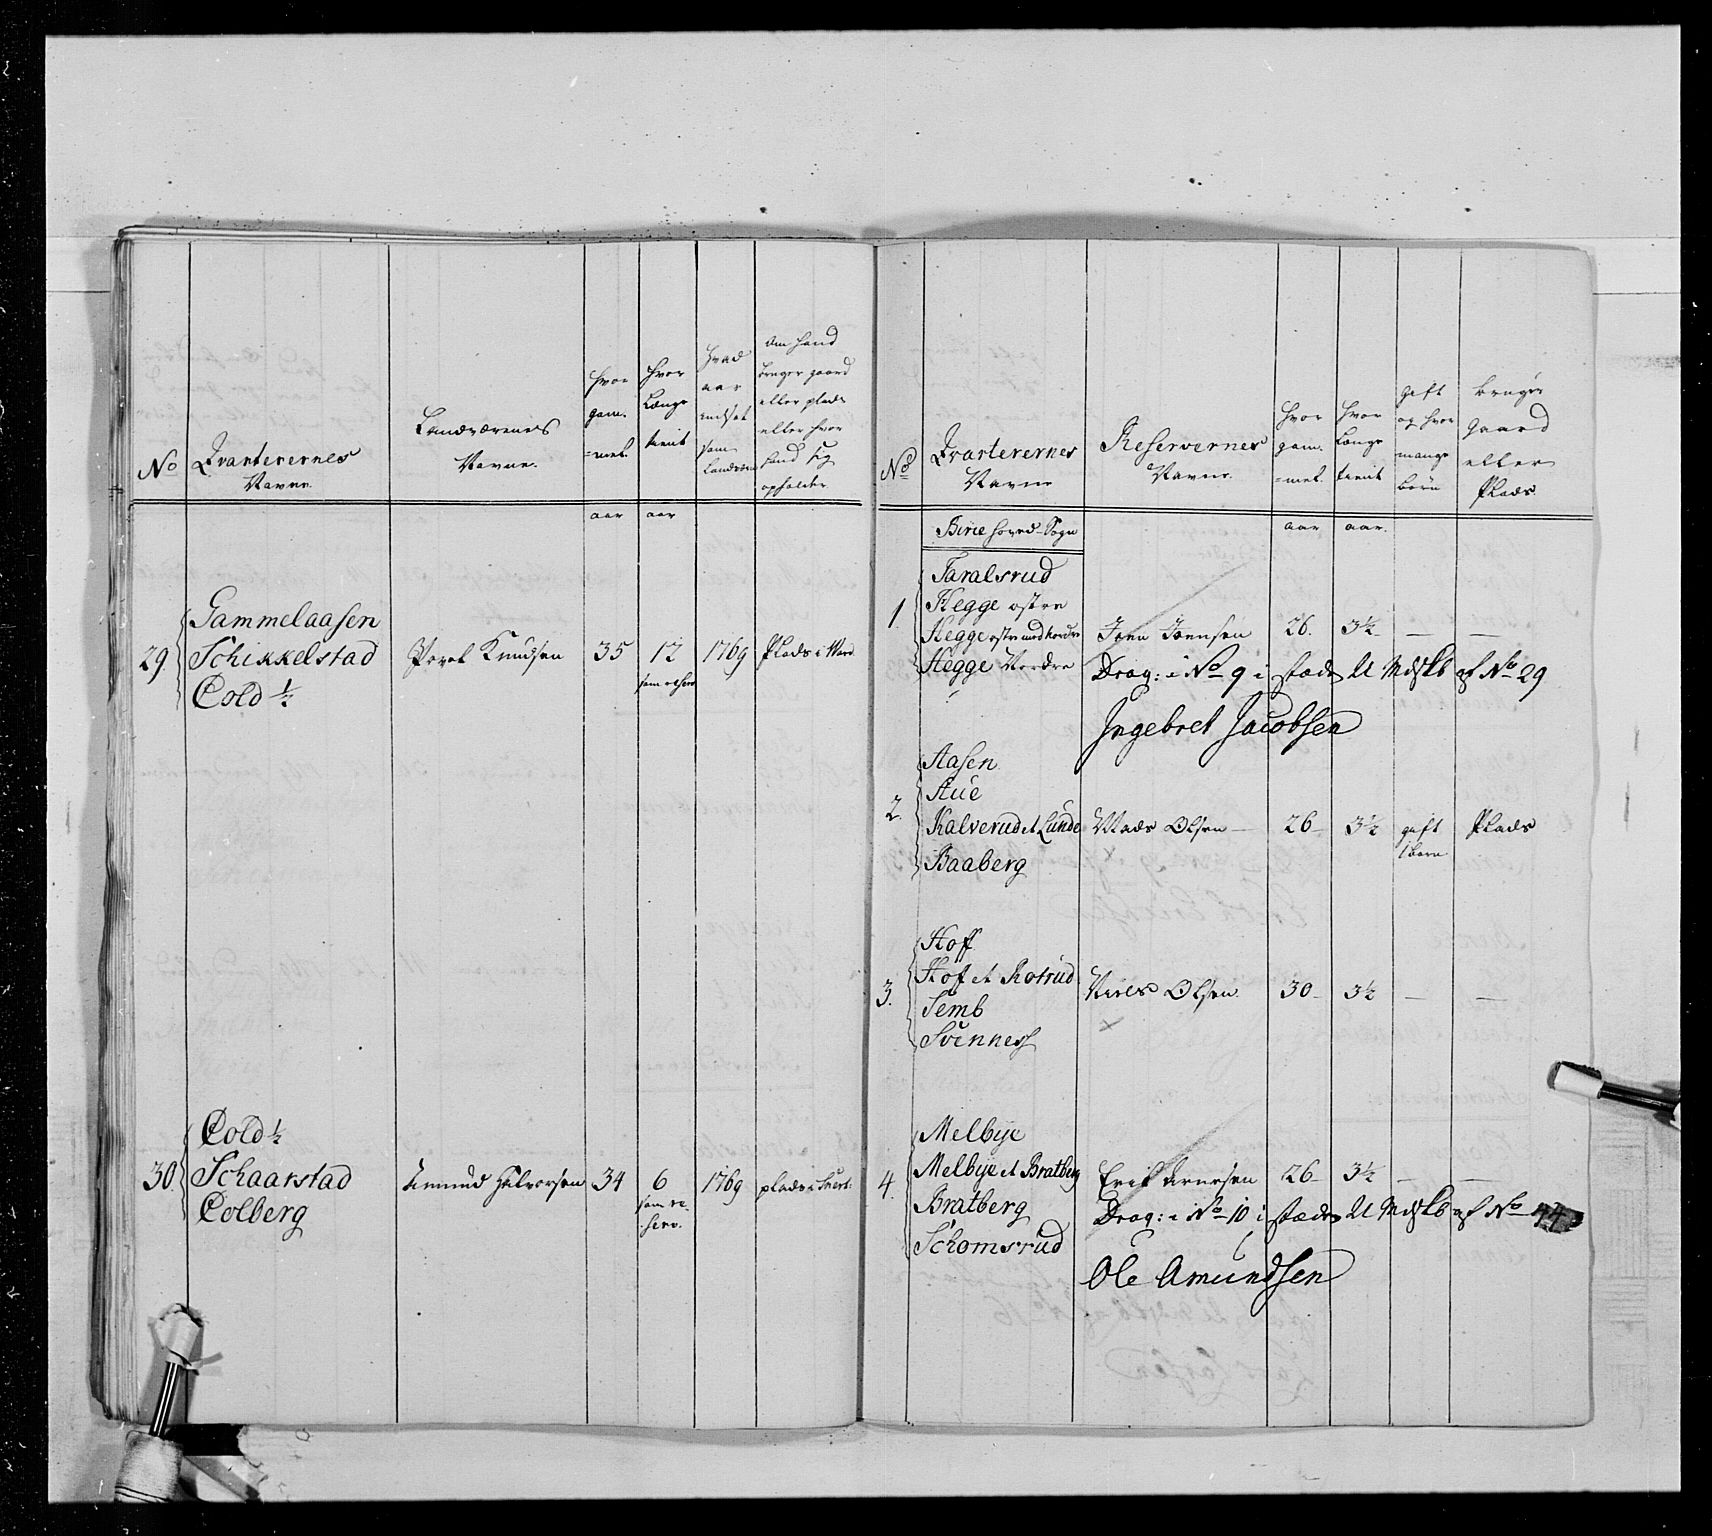 No
Qvarterernes
Navne.
Landværenes
Navne.
hvor
gam-
=mel.
hvor
Længe
tient
hvad
aar
indsat
som
Landværn
om hand
bruger gaard
eller plads
eller hvor
hand sig
opholder
aar
aar
29
Gammelaasen
Schikkelstad
Cold ½
Povel Knudsen
35
12
som reserv
1769
Plads i Vard
30.
Cold ½
Schaarstad
Colberg
Amund Halvorsen
34
6
som re-
serv.
1769
plads i
No
Qvarterernes
Navne
Reservernes
Navne.
hvor
gam-
=mel.
hvor
Længe
tient
gift
og hvor
mange
børn
bruger
gaard
eller
Plads.
Birie hoved-Sogn
aar
aar.
1.
Taralsrud
Hegge østre
Hegge østre med Nordre
Hegge Nordre
Joen Joensen
26.
3½
—
—
Drag: i No 9 i stæden U Mdskb af No 29
Ingebret Jacobsen
2.
Aasen
Aue
Kalverud et Lunde
Baaberg
Mads Olsen
26
3½
gift
1 barn
Plads
3.
Hoff
Hof et Rotrud
Semb
Svennes
Niels Olsen.
30
3½
—
—
4.
Melbye
Melbye et Bratberg
Bratberg
Schomsrud
Erik Arnesen
26
3½
—
—
Drag: i No 10 i stæden U Mdskb af No 44
Ole Amundsen